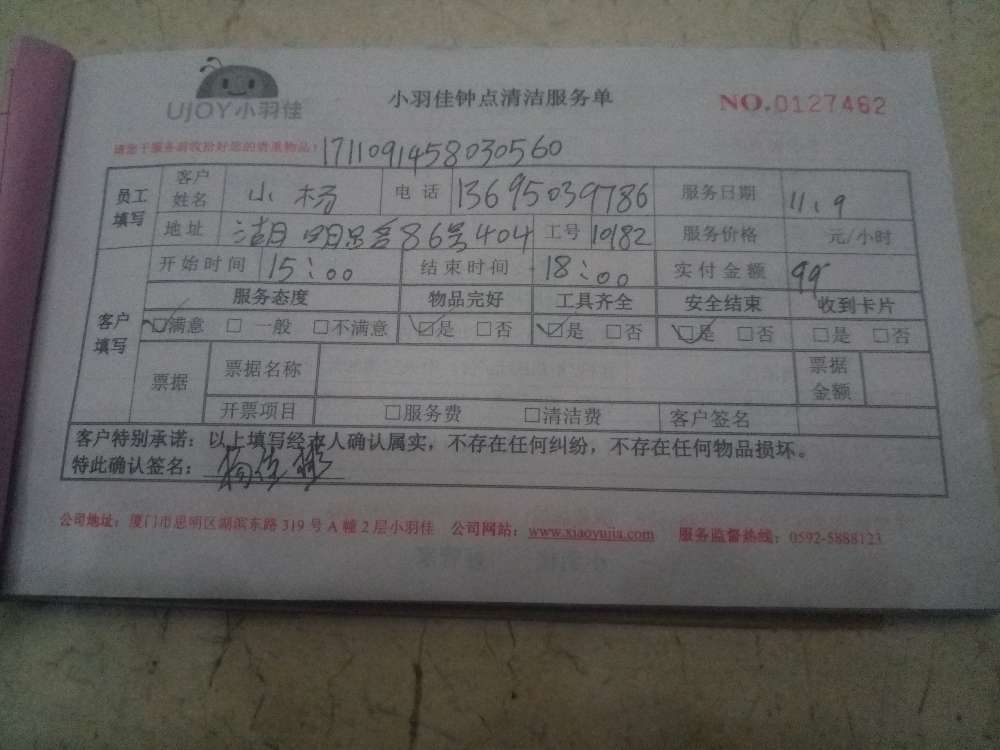 UJOY小羽佳
小羽佳钟点清洁服务单
NO.0127462
请您于服务前收拾好您的贵重物品! 1711091458030560
员工填写 客户姓名 小杨 电话 13695039786 服务日期 11.9
地址 湖明 86号404 工号 10182 服务价格 元/小时
客户填写 开始时间 15:00 结束时间 18:00 实付金额 99
服务态度 物品完好 工具齐全 安全结束 收到卡片
☑满意 □一般 □不满意 ☑是 □否 ☑是 □否 ☑是 □否 □是 □否
票据 票据名称 票据金额
开票项目 □服务费 □清洁费 客户签名
客户特别承诺：以上填写经本人确认属实，不存在任何纠纷，不存在任何物品损坏。
特此确认签名：
公司地址：厦门市思明区湖滨东路319号A幢2层小羽佳 公司网站：www.xiaoyujia.com 服务监督热线：0592-5888123